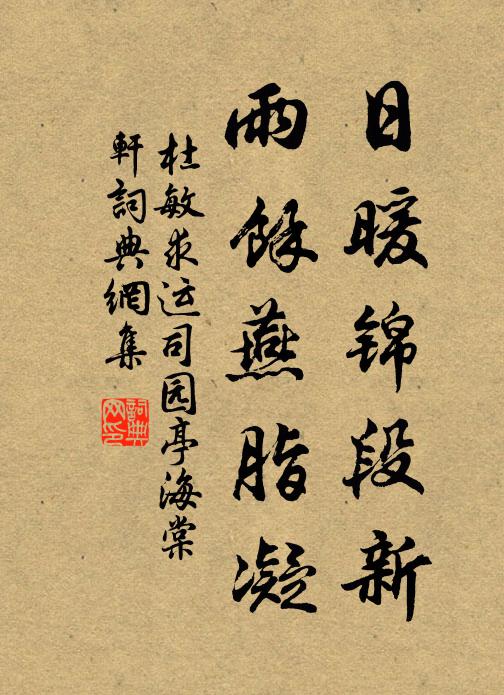 日暖锦段新
雨馀燕脂凝
杜敏求运司园亭海棠
軒詞典網集
詞典
网印